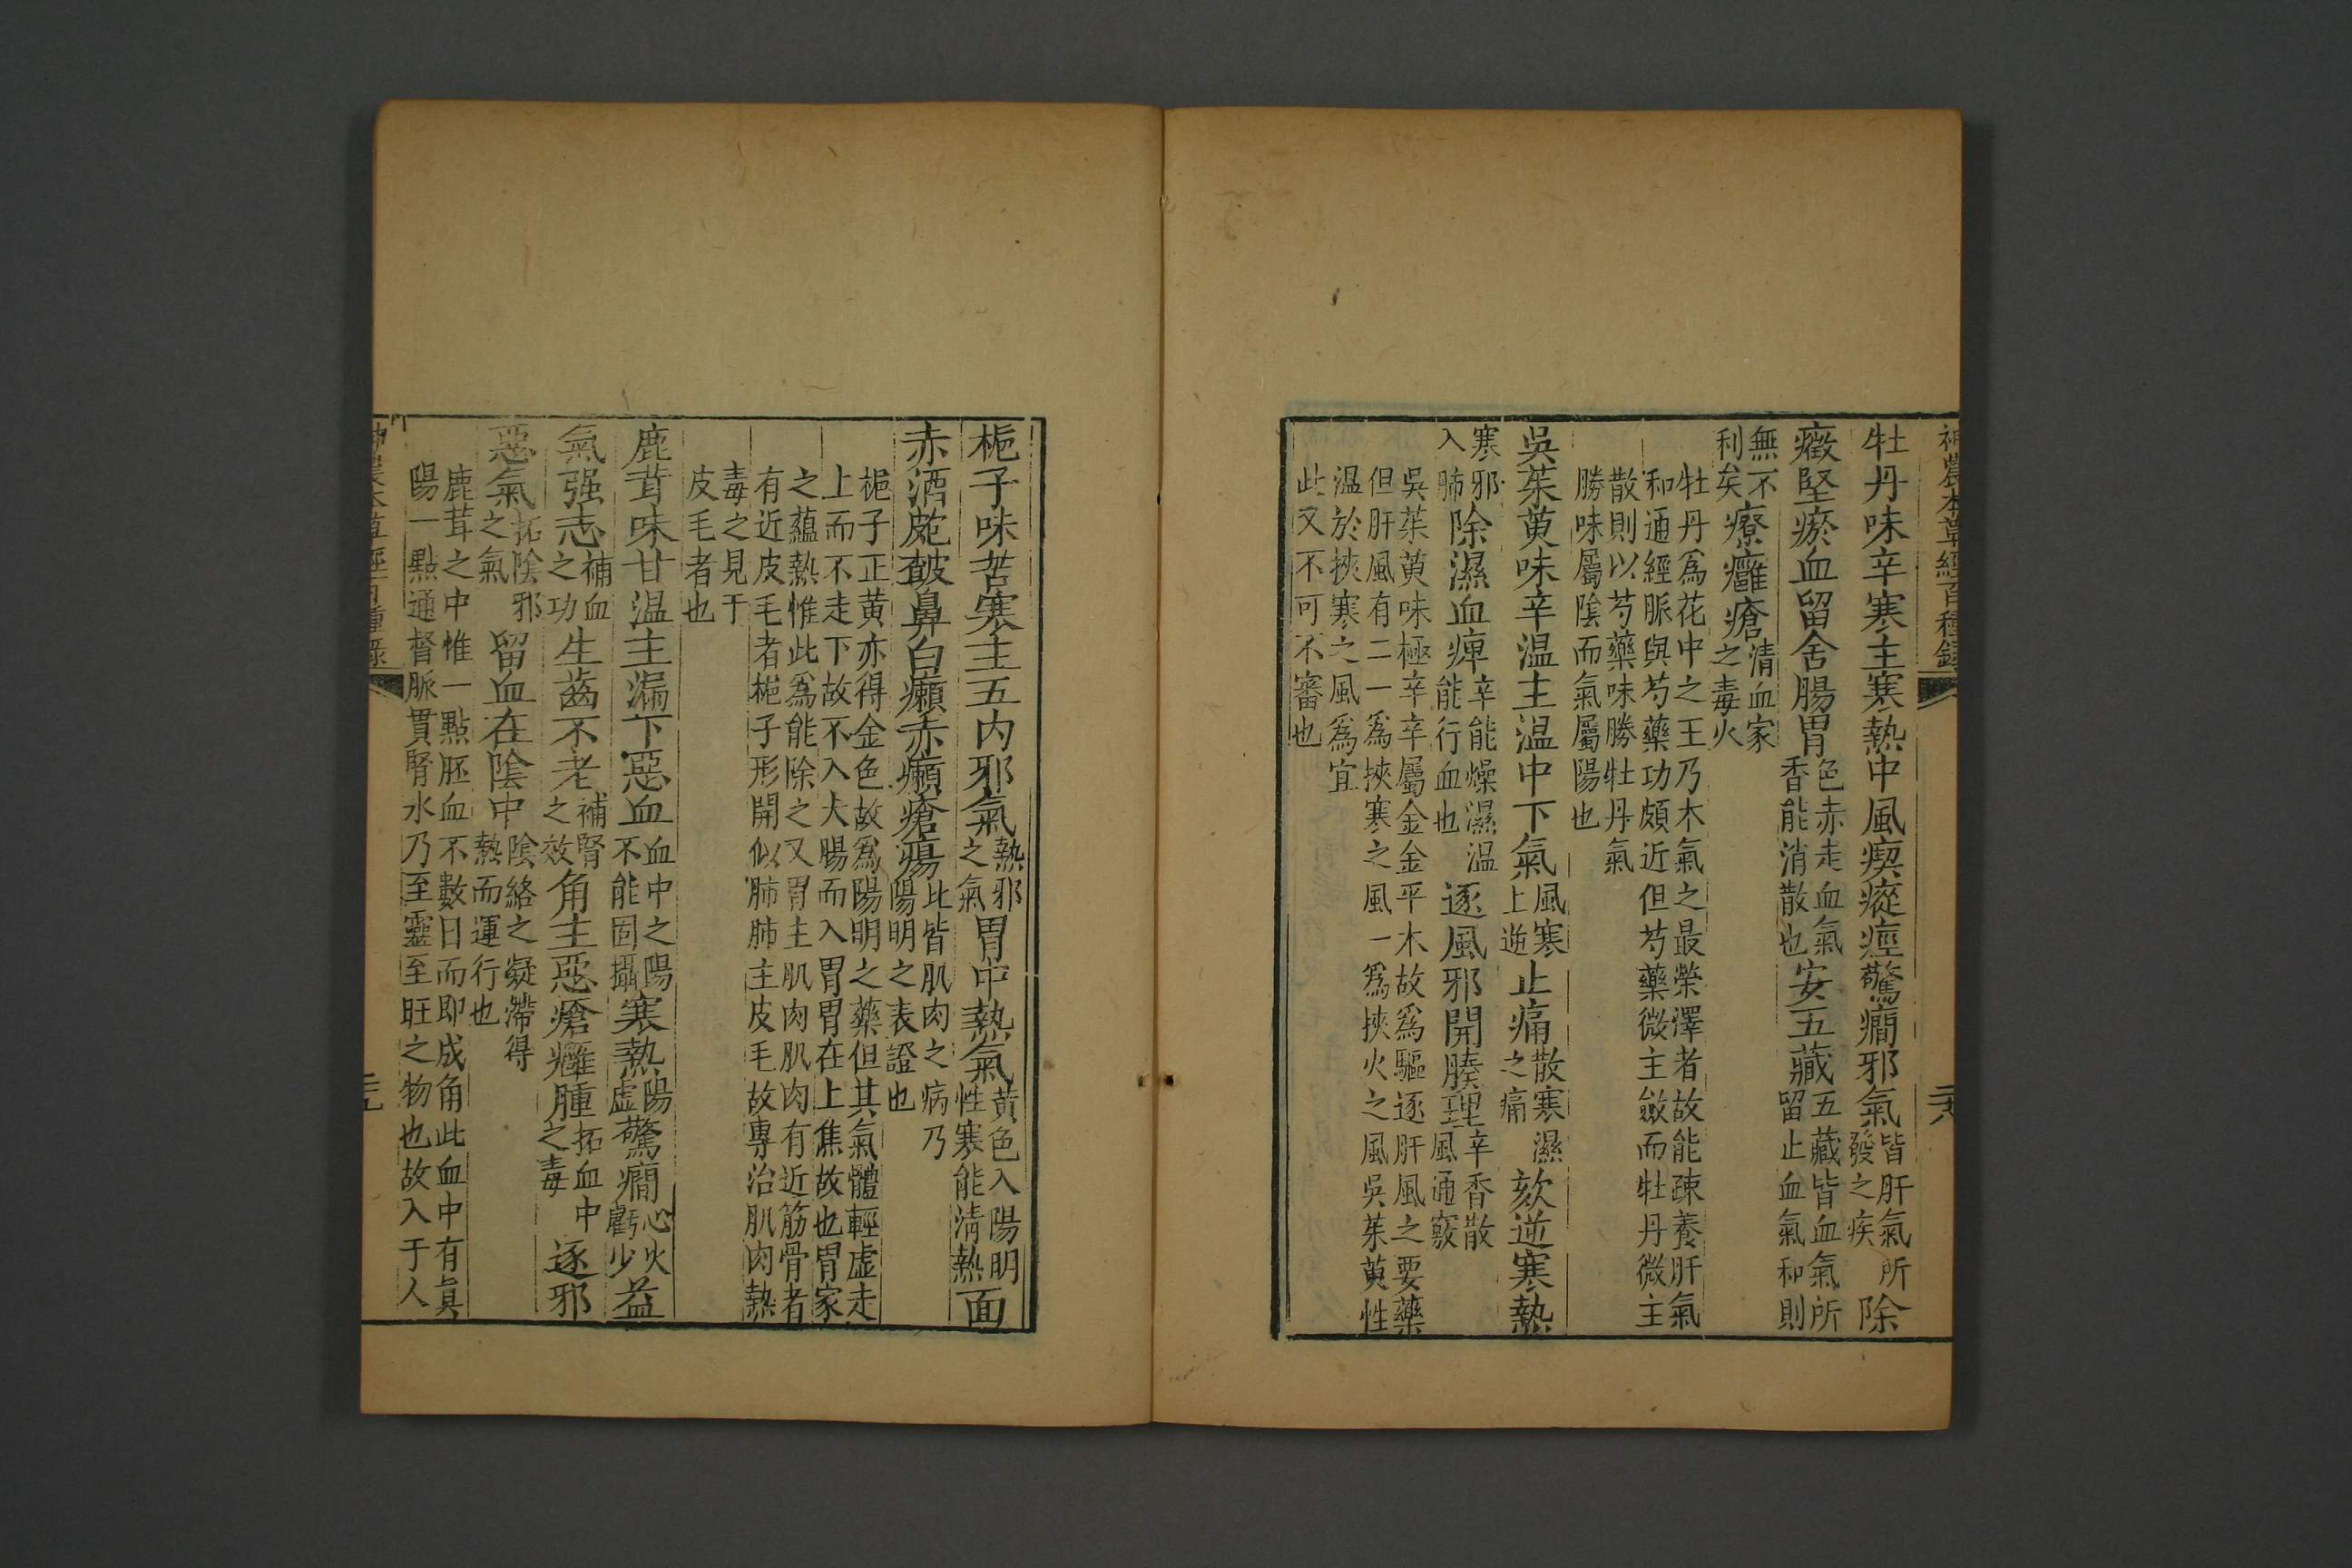 神農本草經百種錄
二十八
牡丹味辛寒主寒熱中風瘈瘲痙驚癎邪氣皆肝氣所發之疾除
癥堅瘀血留舍腸胃色赤走血氣香能消散也安五藏五藏皆血氣所留止血氣和則
無不利矣療癰瘡清血家之毒火
牡丹爲花中之王乃木氣之最榮澤者故能疎養肝氣
和通經脈與芍藥功頗近但芍藥微主斂而牡丹微主
散則以芍藥味勝牡丹氣
勝味屬陰而氣屬陽也
吳茱萸味辛温主温中下氣風寒上逆止痛散寒濕之痛欬逆寒熱
寒邪入肺除濕血痺辛能燥濕温能行血也逐風邪開腠理辛香散風通竅
吳茱萸味極辛辛屬金金平木故爲驅逐肝風之要藥
但肝風有二一爲挾寒之風一爲挾火之風吳茱萸性
温於挾寒之風爲宜
此又不可不審也
梔子味苦寒主五内邪氣熱邪之氣胃中熱氣黄色入陽明性寒能淸熱面
赤酒皰皶鼻白癩赤癩瘡瘍此皆肌肉之病乃陽明之表證也
梔子正黄亦得金色故爲陽明之藥但其氣體輕虚走
上而不走下故不入大腸而入胃胃在上焦故也胃家
之蘊熱惟此爲能除之又胃主肌肉肌肉有近筋骨者
有近皮毛者梔子形開似肺肺主皮毛故專治肌肉熱
毒之見于
皮毛者也
鹿茸味甘温主漏下惡血血中之陽不能固攝寒熱陽虚驚癎心火虧少益
氣强志補血之功生齒不老補腎之效角主惡瘡癰腫拓血中之毒逐邪
惡氣拓陰邪之氣留血在陰中陰絡之凝滯得熱而運行也
鹿茸之中惟一點胚血不數日而即成角此血中有眞
陽一點通督脈貫腎水乃至靈至旺之物也故入于人
神農本草經百種錄
二十九